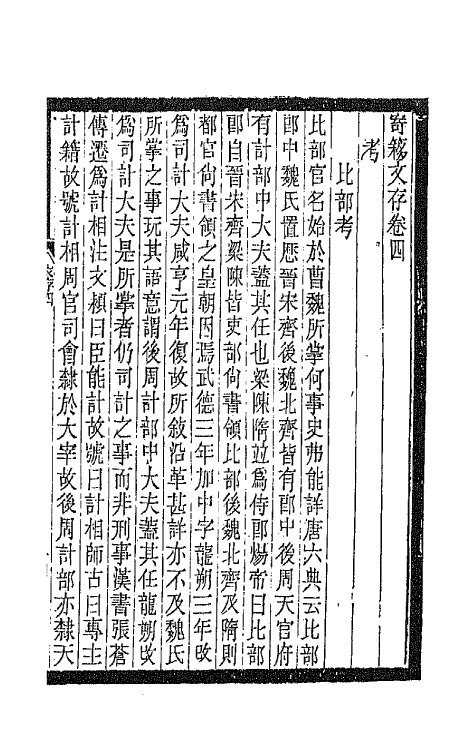 寄簃文存卷四
考
比部考
比部官名始於曹魏所掌何事史弗能詳唐六典云比部
郎中魏氏置歷晉宋齊後魏北齊皆有郎中後周天官府
有計部中大夫蓋其任也梁陳隋並爲侍郎煬帝曰比部
郎自晉宋齊梁陳皆吏部尙書領比部後魏北齊及隋則
都官尙書領之皇朝因焉武德三年加中字龍朔三年改
爲司計大夫咸亨元年復故所敘沿革甚詳亦不及魏氏
所掌之事玩其語意謂後周計部中大夫蓋其任龍朔改
爲司計大夫是所掌者仍司計之事而非刑事漢書張蒼
傳遷爲計相注文頴曰臣能計故號曰計相師古曰專主
計籍故號計相周官司會隸於大宰故後周計部亦隸天